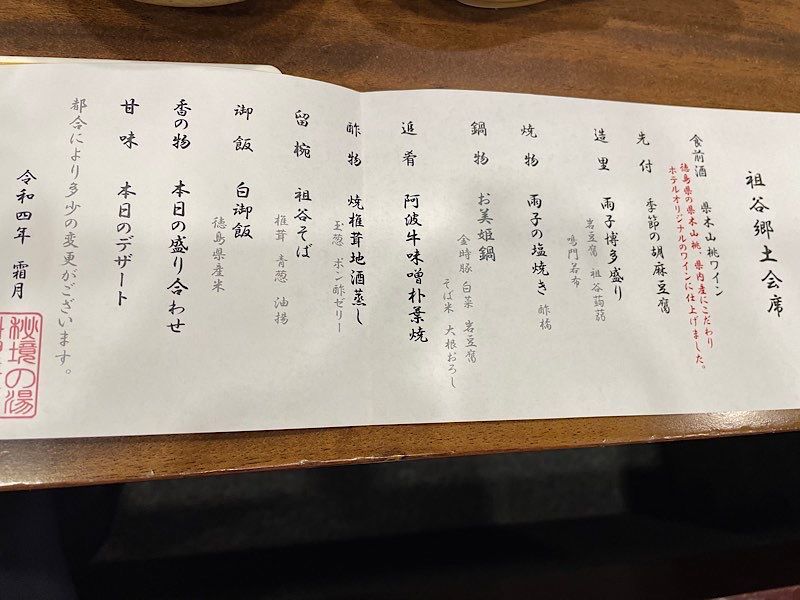 祖谷郷土会席
食前酒 県木山桃ワイン
徳島県の県木山桃、県内産にこだわり
ホテルオリジナルのワインに仕上げました。
先付 季節の胡麻豆腐
造里 雨子博多盛り
岩豆腐 祖谷蒟蒻
鳴門若布
焼物 雨子の塩焼き 酢橘
鍋物 お美姫鍋
金時豚 白菜 岩豆腐
そば米 大根おろし
追肴 阿波牛味噌朴葉焼
酢物 焼椎茸地酒蒸し
玉葱 ポン酢ゼリー
留椀 祖谷そば
椎茸 青葱 油揚
御飯 白御飯
徳島県産米
香の物 本日の盛り合わせ
甘味 本日のデザート
都合により多少の変更がございます。
令和四年 霜月
秘境の湯